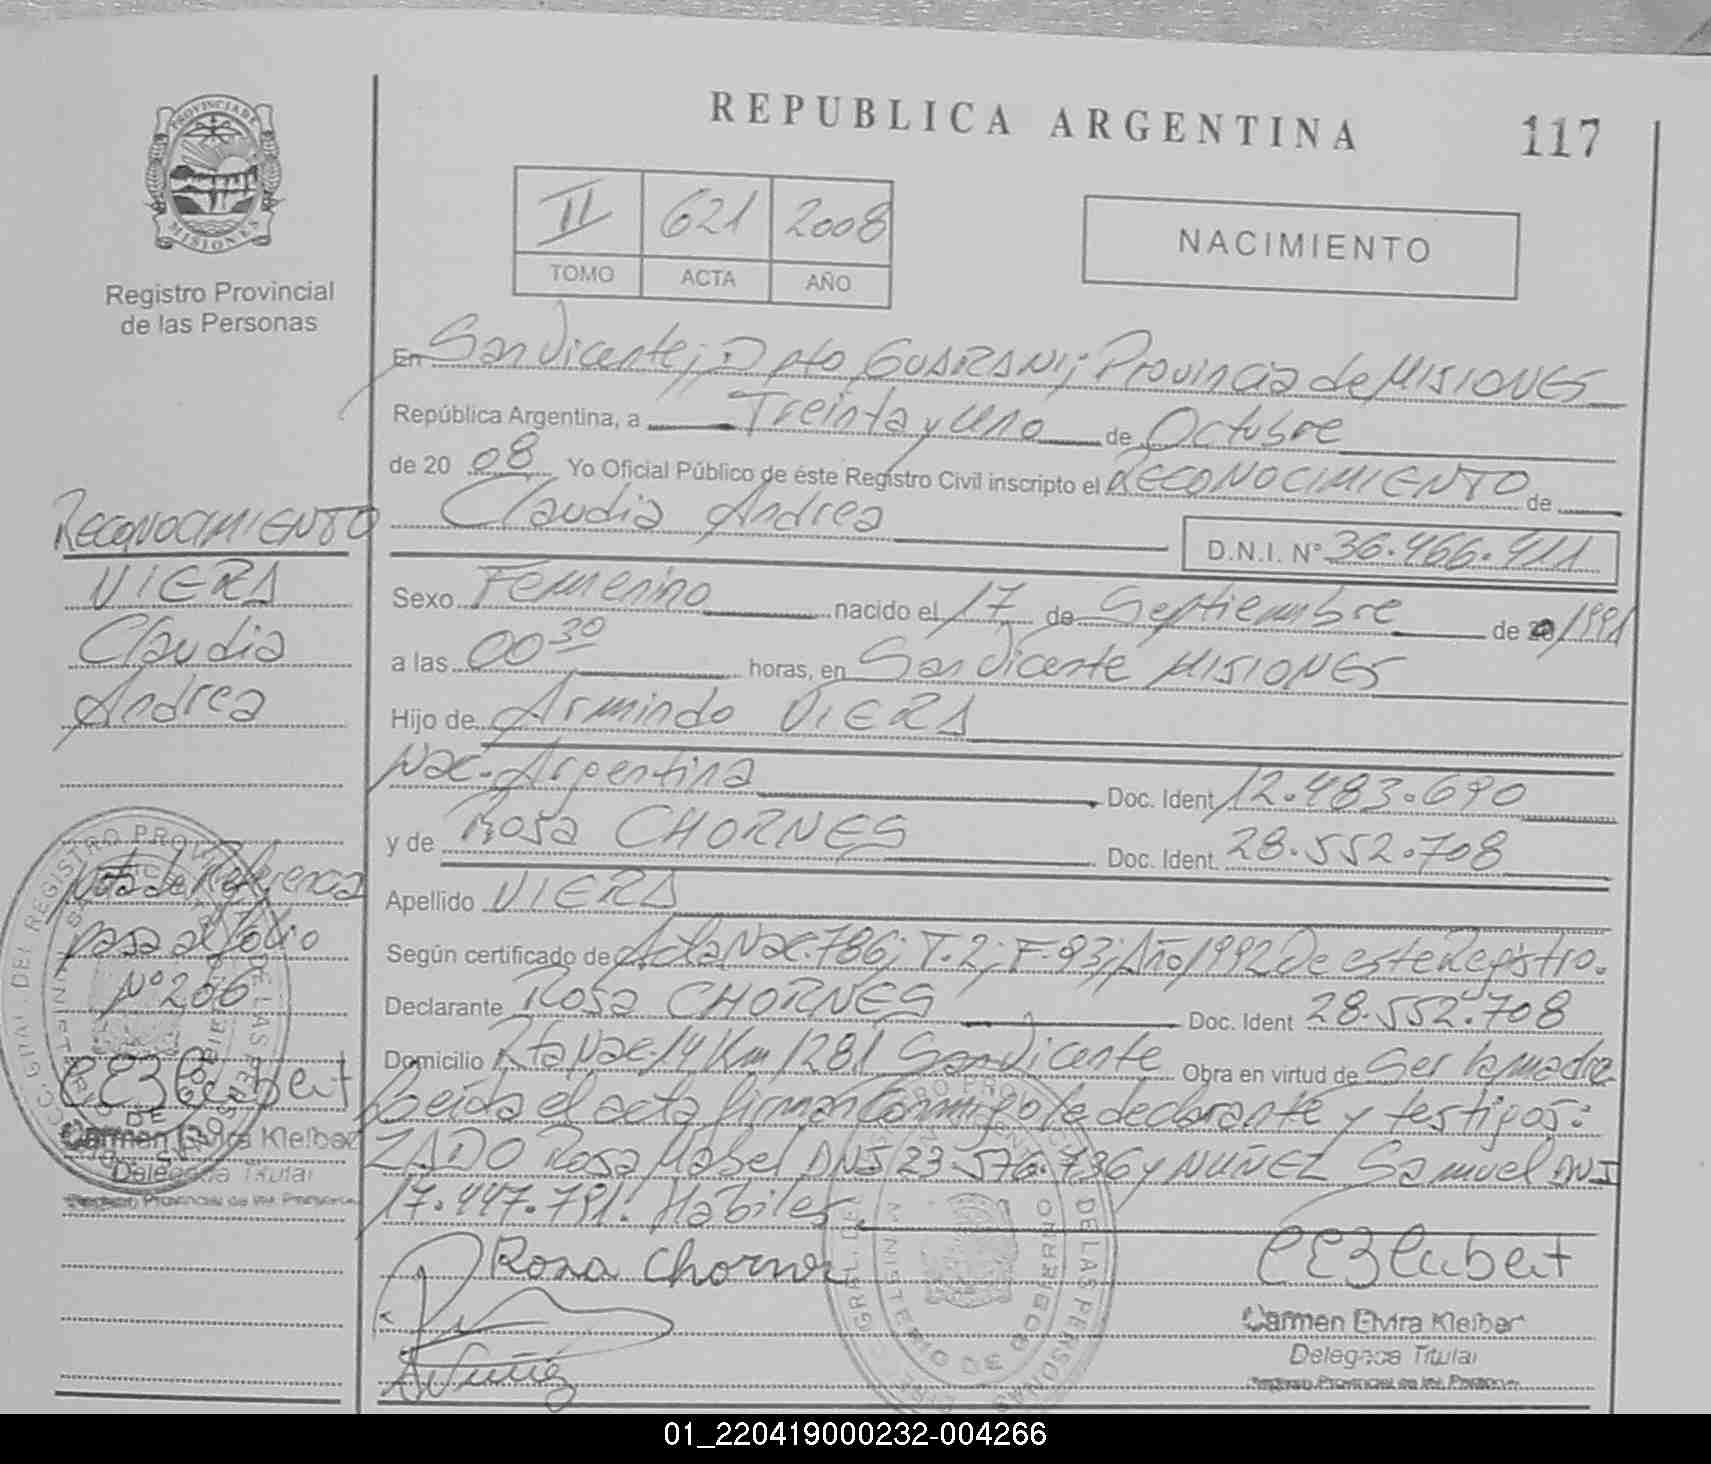 REPUBLICA ARGENTINA
117
PROVINCIA DE
MISIONES
Registro Provincial
de las Personas
II 621 2008
TOMO ACTA AÑO
NACIMIENTO
En San Vicente; Dpto GUARANI; Provincia de MISIONES
República Argentina, a Treinta y uno de Octubre
de 20 08 Yo Oficial Público de éste Registro Civil inscripto el RECONOCIMIENTO de
Claudia Andrea
D.N.I. N° 36.466.411
Sexo Femenino nacido el 17 de Septiembre de 20/1991
a las 00 30 horas, en San Vicente MISIONES
Hijo de Armindo VIERA
Nac. Argentina Doc. Ident 12.483.690
y de Rosa CHORNES Doc. Ident. 28.552.708
Apellido VIERA
Según certificado de Acta Nac. 786; T. 2; F-93; Año 1992 De este Registro.
Declarante Rosa CHORNES Doc. Ident 28.552.708
Domicilio Rta Nac. 14 Km 1281 San Vicente Obra en virtud de Ser la madre
Leída el acta firman conmigo la declarante y testigos:
ZADO Rosa Mabel DNI 23.576.736 y NUÑEZ Samuel DNI
17.447.791. Habiles.
Rosa Chornes
Carmen Elvira Kleiber
Delegada Titular
Registro Provincial de las Personas
RECONOCIMIENTO
VIERA
Claudia
Andrea
Nota de Referencia
pasa al folio
N° 266
Carmen Elvira Kleiber
Delegada Titular
Registro Provincial de las Personas
01_220419000232-004266